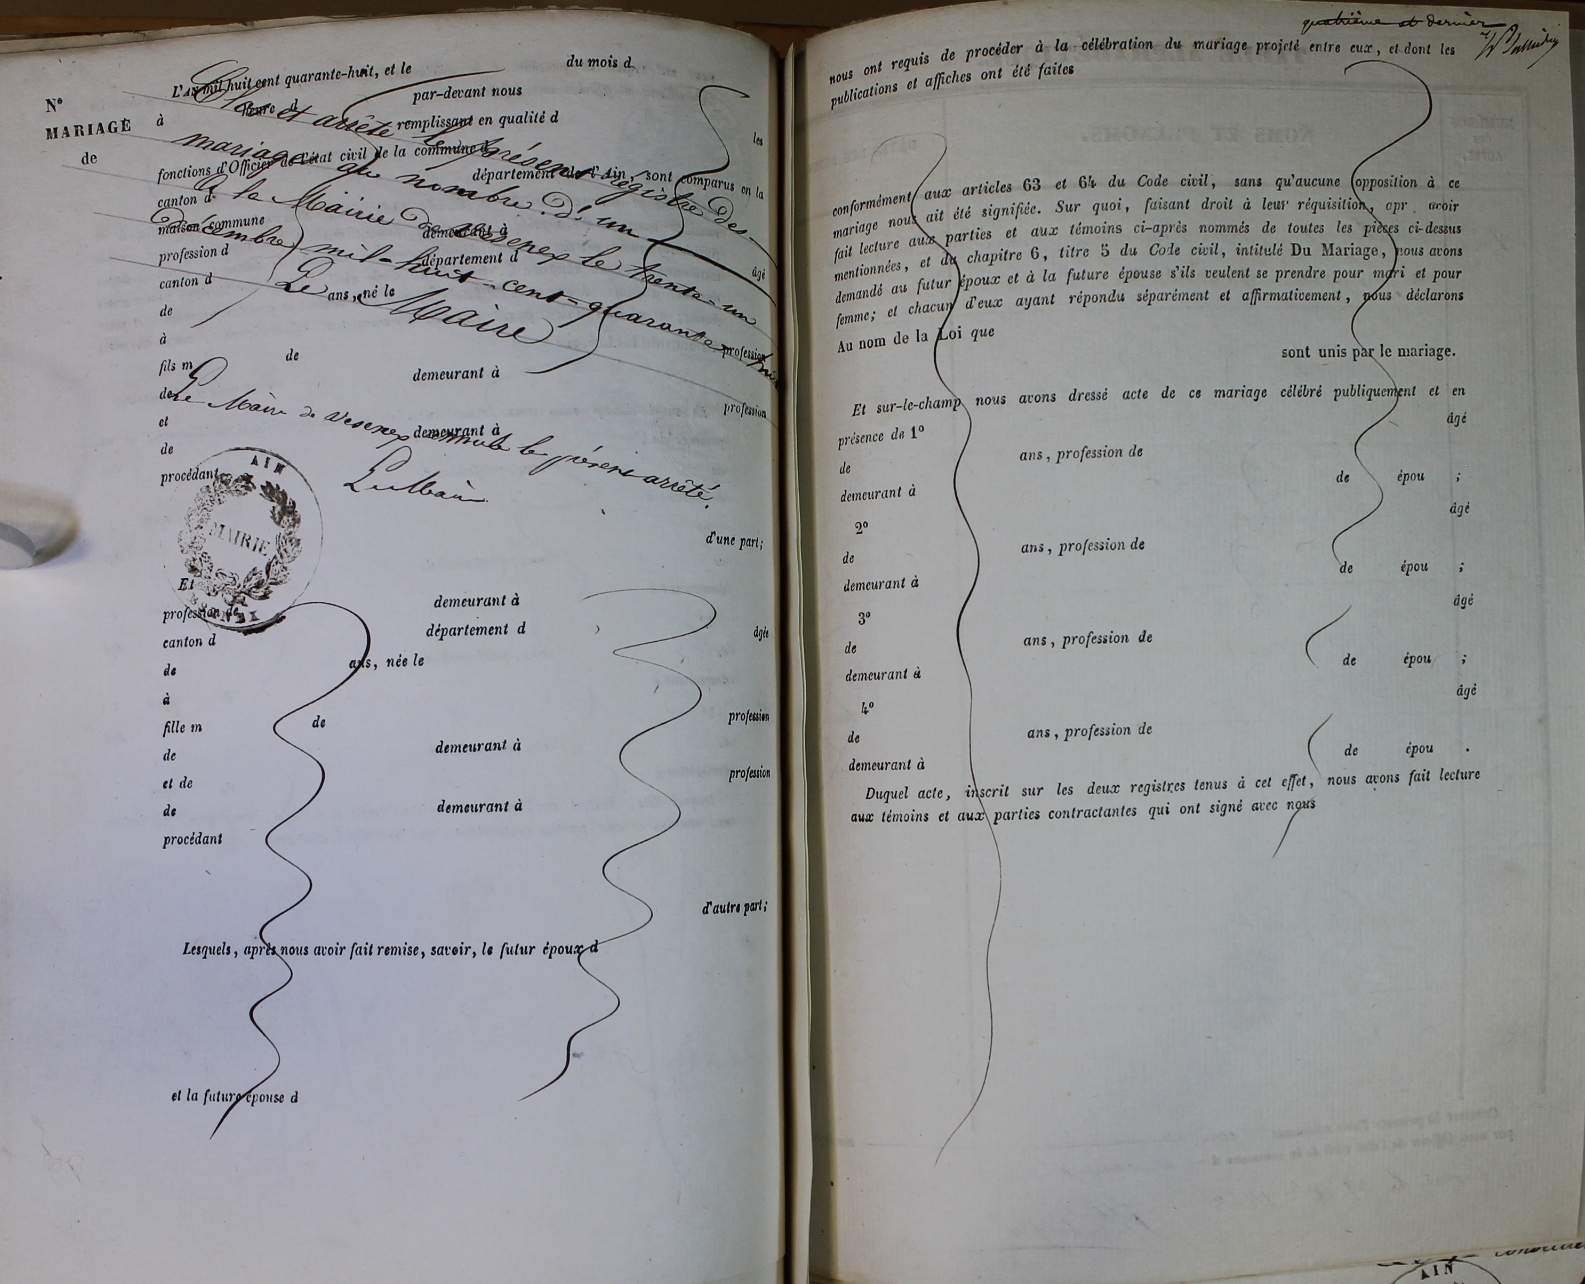 L'an mil huit cent quarante-huit, et le du mois d
N° heure d par-devant nous
MARIAGE à remplissant en qualité d les
de fonctions d'Officier de l'état civil de la commune d
canton d département de l'Ain, sont comparus en la
maison commune
profession d demeurant à
canton d département d âgé
de ans, né le
à
fils m de profession
de demeurant à
et profession
de demeurant à
procédant
d'une part;
Clos et arrêté le présent registre des
mariages au nombre d'un
à la Mairie de Vesenex le trente-un
Décembre mil-huit-cent-quarante-huit
Le Maire
Le Maire de Vesenex annule le présent arrêté.
Le Maire
AIN
MAIRIE
Et
profession de demeurant à
canton d département d âgée
de ans, née le
à
fille m de profession
de demeurant à
et de profession
de demeurant à
procédant
d'autre part;
Lesquels, après nous avoir fait remise, savoir, le futur époux d
et la future épouse d
quatrième et dernier
nous ont requis de procéder à la célébration du mariage projeté entre eux, et dont les
publications et affiches ont été faites
conformément aux articles 63 et 64 du Code civil, sans qu'aucune opposition à ce
mariage nous ait été signifiée. Sur quoi, faisant droit à leur réquisition, apr avoir
fait lecture aux parties et aux témoins ci-après nommés de toutes les pièces ci-dessus
mentionnées, et du chapitre 6, titre 5 du Code civil, intitulé Du Mariage, nous avons
demandé au futur époux et à la future épouse s'ils veulent se prendre pour mari et pour
femme; et chacun d'eux ayant répondu séparément et affirmativement, nous déclarons
Au nom de la Loi que
sont unis par le mariage.
Et sur-le-champ nous avons dressé acte de ce mariage célébré publiquement et en
présence de 1° âgé
de ans, profession de
demeurant à de épou ;
2° âgé
de ans, profession de
demeurant à de épou ;
3° âgé
de ans, profession de
demeurant à de épou ;
4° âgé
de ans, profession de
demeurant à de épou .
Duquel acte, inscrit sur les deux registres tenus à cet effet, nous avons fait lecture
aux témoins et aux parties contractantes qui ont signé avec nous
AIN